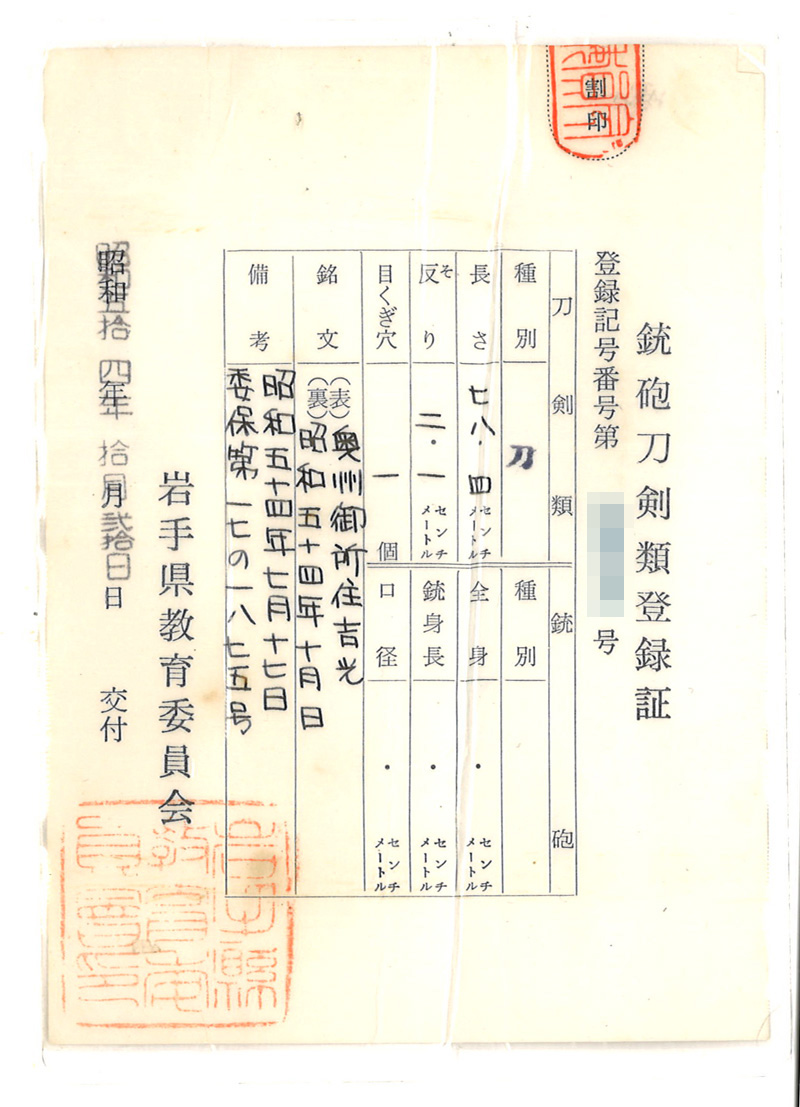 割印
銃砲刀剣類登録証
登録記号番号第 号
刀剣類 銃砲
種別 刀 種別
長さ 七八.四 センチメートル 全身 ・ センチメートル
反り そ 二.一 センチメートル 銃身長 ・ センチメートル
目くぎ穴 一個 口径 ・ センチメートル
銘文 (表)奥州御所住吉光
(裏)昭和五十四年十月日
備考 昭和五十四年七月十七日
委保第一七の一八七五号
岩手県教育委員会
昭和五拾四年 拾 月 弐拾日 日 交付